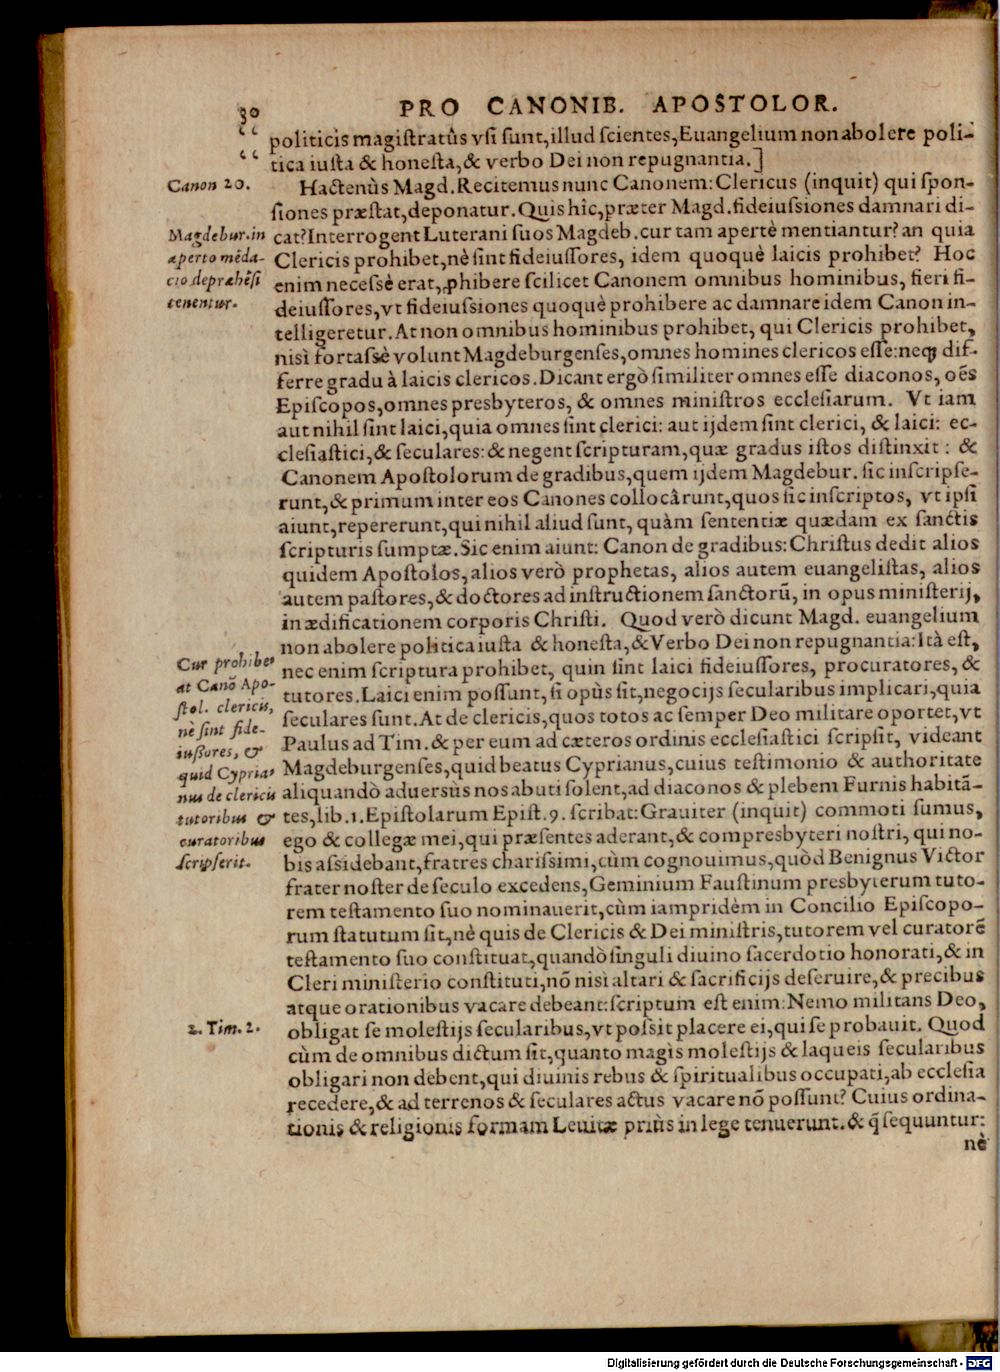 30
PRO CANONIB. APOSTOLOR.
“ politicis magiſtratûs vſi ſunt,illud ſcientes,Euangelium non abolere poli-
“ tica iuſta & honeſta,& verbo Dei non repugnantia.]
Canon 20.
Hactenùs Magd.Recitemus nunc Canonem:Clericus (inquit) qui ſpon-
ſiones præſtat,deponatur.Quis hîc,præter Magd.fideiuſsiones damnari di-
Magdebur.in
aperto mẽda-
cio depræhẽſi
tenentur.
cat?Interrogent Luterani ſuos Magdeb.cur tam apertè mentiantur?an quia
Clericis prohibet,nè ſint fideiuſſores, idem quoquè laicis prohibet? Hoc
enim neceſsè erat,ꝓhibere ſcilicet Canonem omnibus hominibus, fieri fi-
deiuſſores,vt fideiuſsiones quoquè prohibere ac damnare idem Canon in-
telligeretur.At non omnibus hominibus prohibet, qui Clericis prohibet,
niſì fortaſsè volunt Magdeburgenſes,omnes homines clericos eſſe:neqꝫ dif-
ferre gradu à laicis clericos.Dicant ergò ſimiliter omnes eſſe diaconos, oẽs
Epiſcopos,omnes presbyteros, & omnes miniſtros eccleſiarum. Vt iam
aut nihil ſint laici,quia omnes ſint clerici: aut ijdem ſint clerici, & laici: ec-
cleſiaſtici,& ſeculares:& negent ſcripturam,quæ gradus iſtos diſtinxit: &
Canonem Apoſtolorum de gradibus,quem ijdem Magdebur. ſic inſcripſe-
runt,& primum inter eos Canones collocârunt,quos ſic inſcriptos, vt ipſi
aiunt,repererunt,qui nihil aliud ſunt, quàm ſententiæ quædam ex ſanctis
ſcripturis ſumptæ.Sic enim aiunt: Canon de gradibus:Chriſtus dedit alios
quidem Apoſtolos,alios verò prophetas, alios autem euangeliſtas, alios
autem paſtores,& doctores ad inſtructionem ſanctorũ, in opus miniſterij,
in ædificationem corporis Chriſti. Quod verò dicunt Magd. euangelium
non abolere politica iuſta & honeſta,& Verbo Dei non repugnantia:Ità eſt,
Cur prohibe-
at Canõ Apo-
ſtol. clericis,
nè ſint fide-
iuſſores, &
quid Cypria-
nus de clericis
tutoribus &
curatoribus
ſcripſerit.
nec enim ſcriptura prohibet, quin ſint laici fideiuſſores, procuratores, &
tutores.Laici enim poſſunt,ſi opùs ſit,negocijs ſecularibus implicari,quia
ſeculares ſunt.At de clericis,quos totos ac ſemper Deo militare oportet,vt
Paulus ad Tim.& per eum ad cæteros ordinis eccleſiaſtici ſcripſit, videant
Magdeburgenſes,quid beatus Cyprianus,cuius teſtimonio & authoritate
aliquandò aduersùs nos abuti ſolent,ad diaconos & plebem Furnis habitã-
tes,lib.1.Epiſtolarum Epiſt.9. ſcribat:Grauiter (inquit) commoti ſumus,
ego & collegæ mei,qui præſentes aderant,& compresbyteri noſtri, qui no-
bis aſsidebant,fratres chariſsimi,cùm cognouimus,quòd Benignus Victor
frater noſter de ſeculo excedens,Geminium Fauſtinum presbyterum tuto-
rem teſtamento ſuo nominauerit,cùm iampridèm in Concilio Epiſcopo-
rum ſtatutum ſit,nè quis de Clericis & Dei miniſtris,tutorem vel curatorẽ
teſtamento ſuo conſtituat,quandò ſinguli diuino ſacerdotio honorati,& in
Cleri miniſterio conſtituti,nõ nisì altari & ſacrificijs deſeruire,& precibus
atque orationibus vacare debeant:ſcriptum eſt enim:Nemo militans Deo,
2. Tim. 2.
obligat ſe moleſtijs ſecularibus,vt poſsit placere ei,qui ſe probauit. Quod
cùm de omnibus dictum ſit,quanto magìs moleſtijs & laqueis ſecularibus
obligari non debent,qui diuinis rebus & ſpiritualibus occupati,ab eccleſia
recedere,& ad terrenos & ſeculares actus vacare nõ poſſunt? Cuius ordina-
tionis & religionis formam Leuitæ priùs in lege tenuerunt.& q̃ ſequuntur:
nè
Digitalisierung gefördert durch die Deutsche Forschungsgemeinschaft - DFG